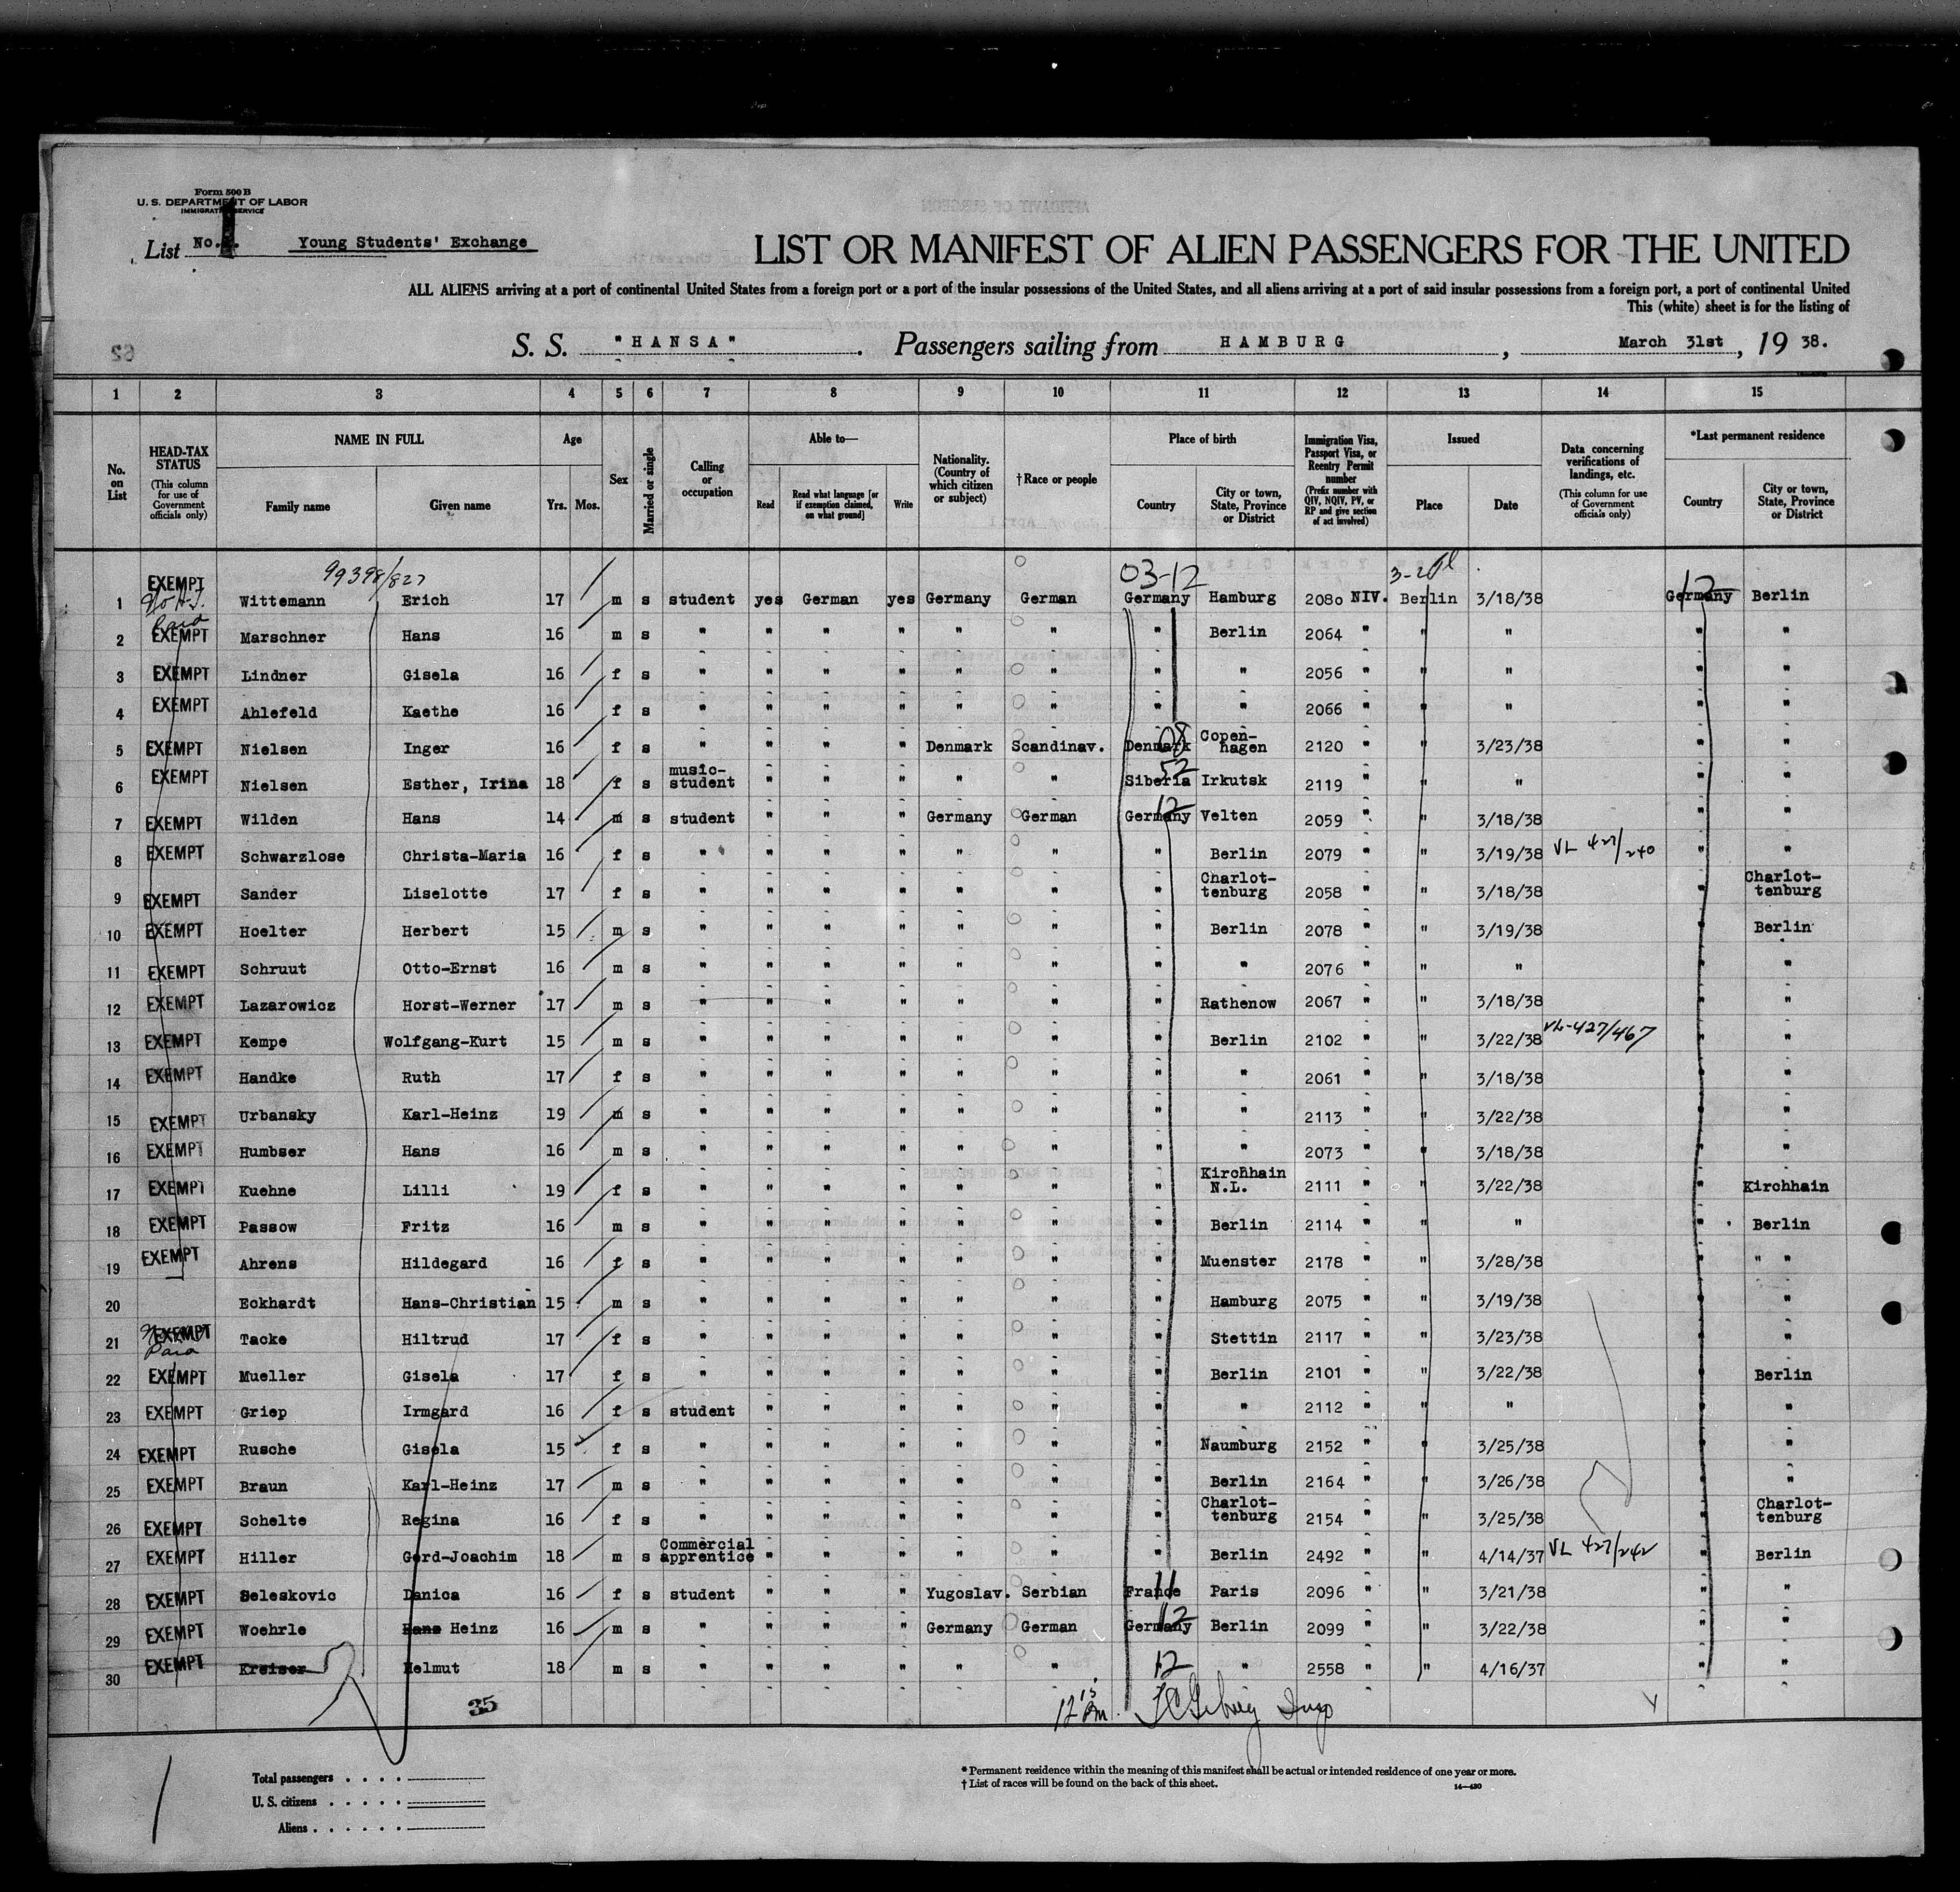 Form 500 B
U. S. DEPARTMENT OF LABOR
IMMIGRATION SERVICE
List No. 1 Young Students' Exchange
LIST OR MANIFEST OF ALIEN PASSENGERS FOR THE UNITED
ALL ALIENS arriving at a port of continental United States from a foreign port or a port of the insular possessions of the United States, and all aliens arriving at a port of said insular possessions from a foreign port, a port of continental United
This (white) sheet is for the listing of
S. S. "HANSA". Passengers sailing from HAMBURG, March 31st, 19 38.
62
1 2 3 4 5 6 7 8 9 10 11 12 13 14 15
No. on List
HEAD-TAX STATUS (This column for use of Government officials only)
NAME IN FULL Family name Given name
Age Yrs. Mos.
Sex
Married or single
Calling or occupation
Able to— Read Read what language [or if exemption claimed, on what ground] Write
Nationality. (Country of which citizen or subject)
†Race or people
Place of birth Country City or town, State, Province or District
Immigration Visa, Passport Visa, or Reentry Permit number (Prefix number with QIV, NQIV, PV, or RP and give section of act involved)
Issued Place Date
Data concerning verifications of landings, etc. (This column for use of Government officials only)
*Last permanent residence Country City or town, State, Province or District
99398/827 03-12
1 EXEMPT Wittemann Erich 17 m s student yes German yes Germany German Germany Hamburg 2080 NIV. Berlin 3/18/38 Germany 12 Berlin
2 Paid EXEMPT Marschner Hans 16 m s " " " " " " " Berlin 2064 " " " " "
3 EXEMPT Lindner Gisela 16 f s " " " " " " " " 2056 " " " " "
4 EXEMPT Ahlefeld Kaethe 16 f s " " " " " " " " 2066 " " " " "
5 EXEMPT Nielsen Inger 16 f s " " " " Denmark Scandinav. Denmark 08 Copen-hagen 2120 " " 3/23/38 " "
6 EXEMPT Nielsen Esther, Irina 18 f s music-student " " " " " Siberia 52 Irkutsk 2119 " " " " "
7 EXEMPT Wilden Hans 14 m s student " " " Germany German Germany 12 Velten 2059 " " 3/18/38 " "
8 EXEMPT Schwarzlose Christa-Maria 16 f s " " " " " " " Berlin 2079 " " 3/19/38 VL 427/240 " "
9 EXEMPT Sander Liselotte 17 f s " " " " " " " Charlot-tenburg 2058 " " 3/18/38 " Charlot-tenburg
10 EXEMPT Hoelter Herbert 15 m s " " " " " " " Berlin 2078 " " 3/19/38 " Berlin
11 EXEMPT Schruut Otto-Ernst 16 m s " " " " " " " " 2076 " " " " "
12 EXEMPT Lazarowicz Horst-Werner 17 m s " " " " " " " Rathenow 2067 " " 3/18/38 " "
13 EXEMPT Kempe Wolfgang-Kurt 15 m s " " " " " " " Berlin 2102 " " 3/22/38 VL-427/467 " "
14 EXEMPT Handke Ruth 17 f s " " " " " " " " 2061 " " 3/18/38 " "
15 EXEMPT Urbansky Karl-Heinz 19 m s " " " " " " " " 2113 " " 3/22/38 " "
16 EXEMPT Humbser Hans 16 m s " " " " " " " " 2073 " " 3/18/38 " "
17 EXEMPT Kuehne Lilli 19 f s " " " " " " " Kirchhain N.L. 2111 " " 3/22/38 " Kirchhain
18 EXEMPT Passow Fritz 16 m s " " " " " " " Berlin 2114 " " " " Berlin
19 EXEMPT Ahrens Hildegard 16 f s " " " " " " " Muenster 2178 " " 3/28/38 " " "
20 Eckhardt Hans-Christian 15 m s " " " " " " " Hamburg 2075 " " 3/19/38 " "
21 EXEMPT Paid Tacke Hiltrud 17 f s " " " " " " " Stettin 2117 " " 3/23/38 " "
22 EXEMPT Mueller Gisela 17 f s " " " " " " " Berlin 2101 " " 3/22/38 " Berlin
23 EXEMPT Griep Irmgard 16 f s student " " " " " " " 2112 " " " " "
24 EXEMPT Rusche Gisela 15 f s " " " " " " " Naumburg 2152 " " 3/25/38 " "
25 EXEMPT Braun Karl-Heinz 17 m s " " " " " " " Berlin 2164 " " 3/26/38 " "
26 EXEMPT Schelte Regina 16 f s " " " " " " " Charlot-tenburg 2154 " " 3/25/38 " Charlot-tenburg
27 EXEMPT Hiller Gerd-Joachim 18 m s Commercial apprentice " " " " " " Berlin 2492 " " 4/14/37 VL 427/242 " Berlin
28 EXEMPT Seleskovic Danica 16 f s student " " " Yugoslav. Serbian France 11 Paris 2096 " " 3/21/38 " "
29 EXEMPT Woehrle Hans Heinz 16 m s " " " " Germany German Germany 12 Berlin 2099 " " 3/22/38 " "
30 EXEMPT Kreiser Helmut 18 m s " " " " " " 12 " 2558 " " 4/16/37 " "
35
Total passengers
U. S. citizens
Aliens
* Permanent residence within the meaning of this manifest shall be actual or intended residence of one year or more.
† List of races will be found on the back of this sheet.
14—430